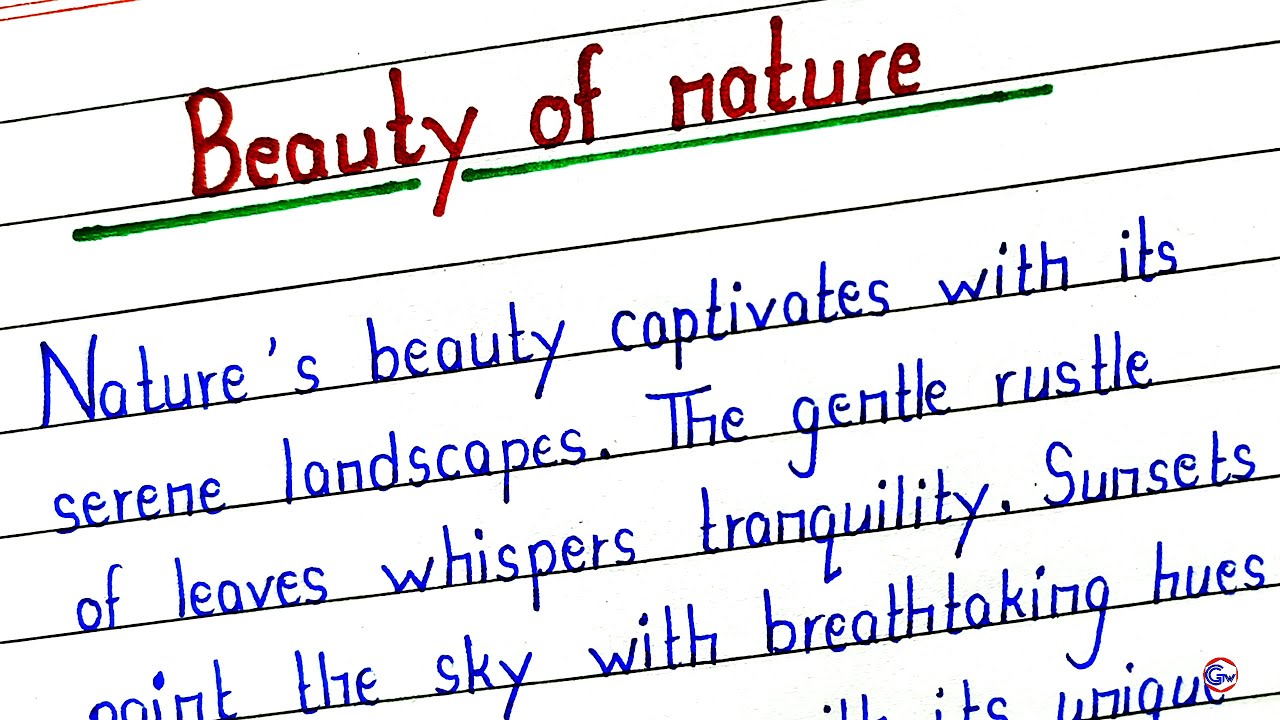 Beauty of nature
Nature's beauty captivates with its
serene landscapes. The gentle rustle
of leaves whispers tranquility. Sunsets
paint the sky with breathtaking hues
with its unique
GTW